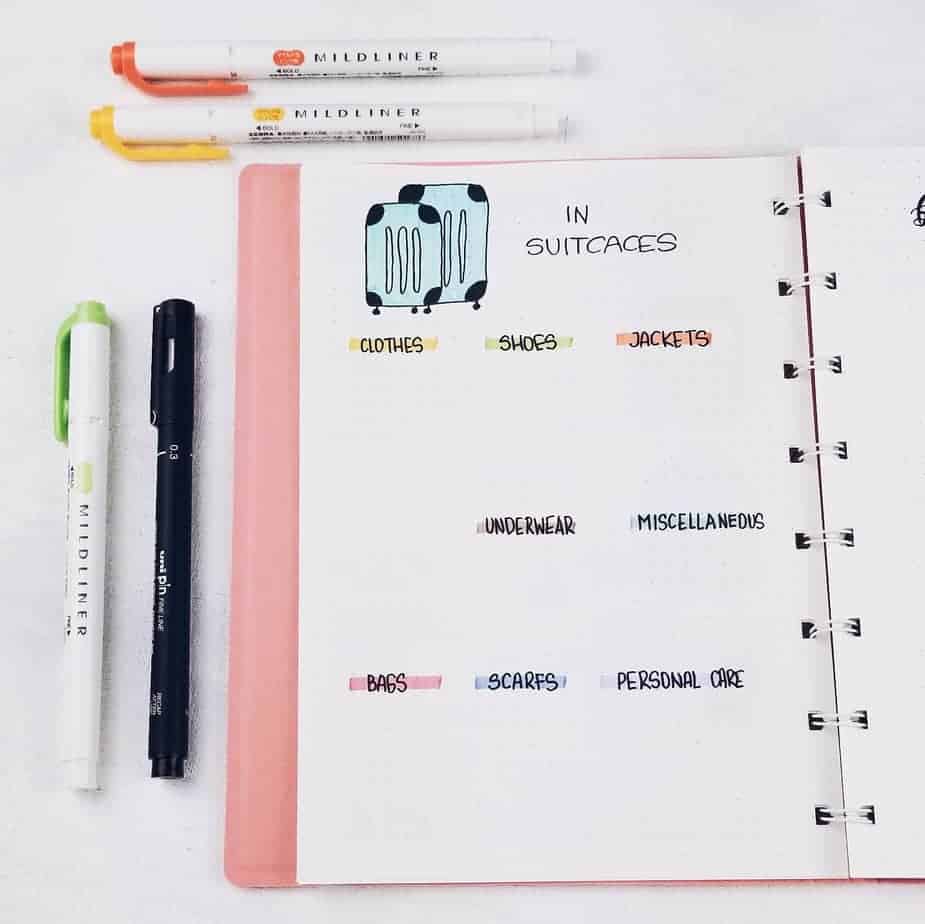 MILDLINER
◀BOLD FINE▶
MILDLINER
◀BOLD FINE▶
ZEBRA
IN
SUITCACES
CLOTHES SHOES JACKETS
UNDERWEAR MISCELLANEOUS
BAGS SCARFS PERSONAL CARE
◀BOLD MILDLINER FINE▶
0.3
uni pin FINE LINE
RECAP
AFTER